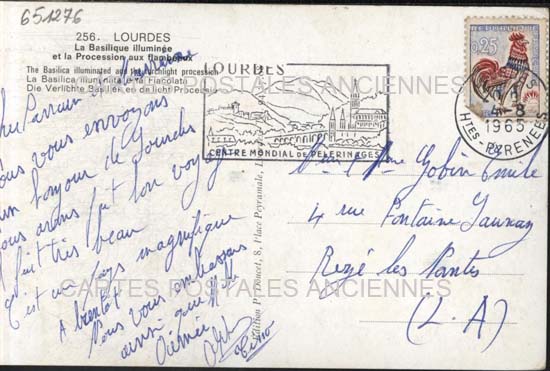 651276
256. LOURDES
La Basilique illuminée
et la Procession aux flambeaux
The Basilica illuminated and the torchlight procession
La Basilica illuminata e la Fiaccolata
Die Verlichte Basiliek en de licht Processie
Parrain
vous envoyons
un bonjour de Lourdes
nous avons fait bon voyage
fait très beau
C'est un pays magnifique
A bientôt
Nous vous embrassons
ainsi que
Edition P. Doucet, 8, Place Peyramale,
LOURDES
CENTRE MONDIAL DE PELERINAGES
0,25
4-8
1965
HTES-PYRENEES
Mme Gobin Emile
4 rue Fontaine Launay
Rezé les Nantes
(L-A)
CARTES POSTALES ANCIENNES
CARTES POSTALES ANCIENNES